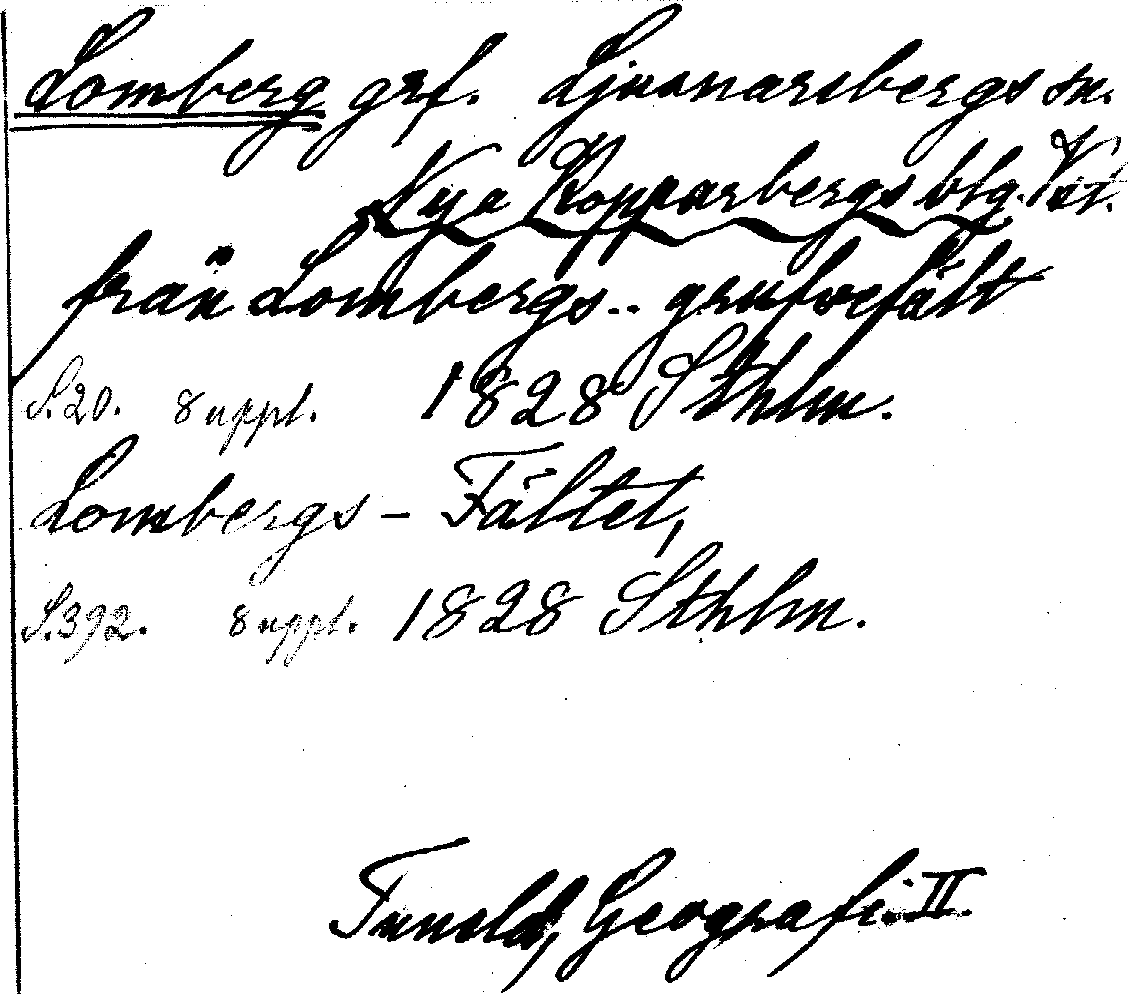 Lomberg grf. Ljusnarsbergs sn.
Nya Kopparbergs blg. Vst.
från Lombergs .. grufvefält
S. 20. 8 uppl. 1828 Sthlm.
Lombergs - Fältet,
S. 392. 8 uppl. 1828 Sthlm.
Tuneld, Geografi. II.